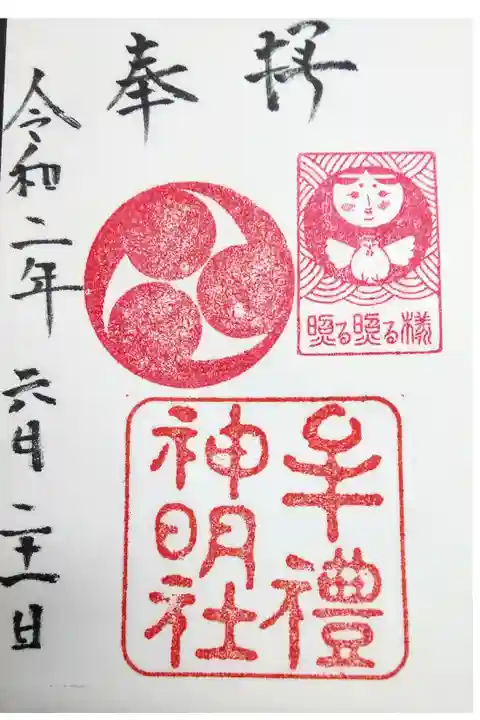 奉拝
照る照る様
牟禮
神明社
令和二年 六月二十一日